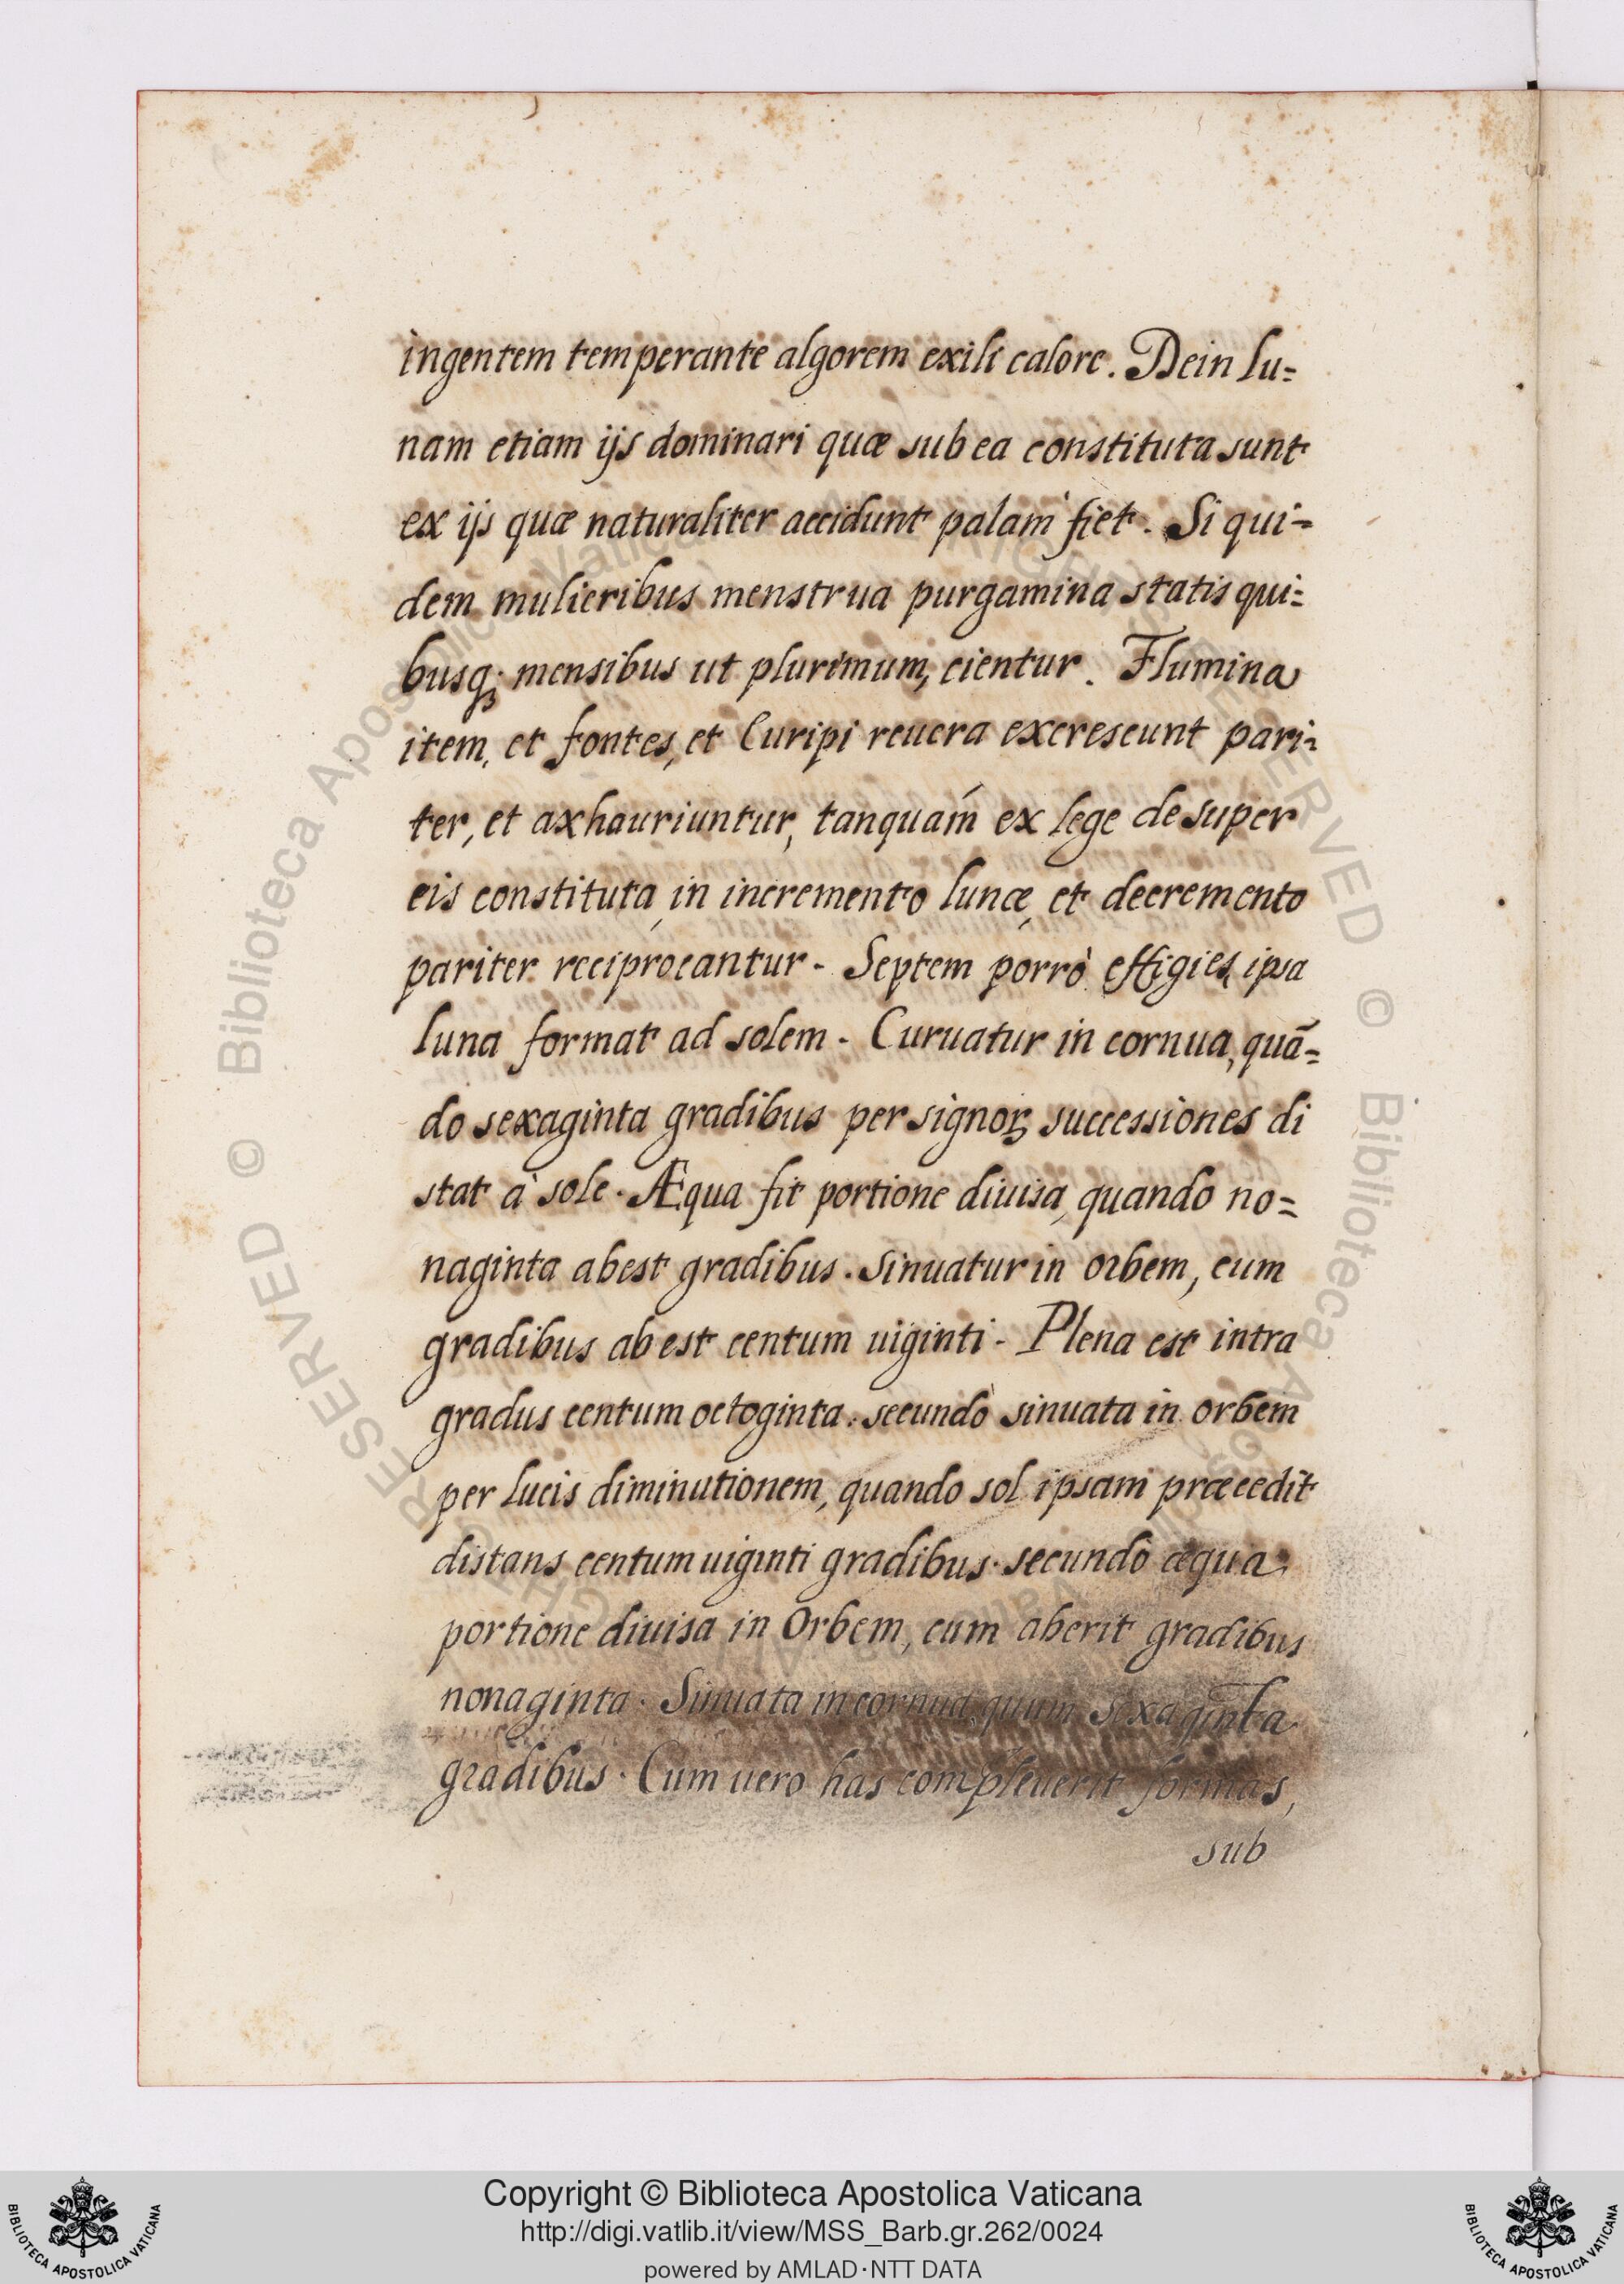 ingentem temperante algorem exili calore. Dein lu=
nam etiam ijs dominari quæ sub ea constituta sunt
ex ijs quæ naturaliter accidunt palam fiet. Si qui=
dem mulieribus menstrua purgamina statis qui=
busq; mensibus ut plurimum, cientur. Flumina
item, et fontes, et Euripi reuera excrescunt pari=
ter, et axhauriuntur, tanquam ex lege de super
eis constituta, in incremento lunæ, et decremento
pariter reciprocantur. Septem porrò effigies, ipsa
luna format ad solem. Curuatur in cornua, quā=
do sexaginta gradibus per signoꝝ successiones di
stat à sole. Æqua fit portione diuisa, quando no=
naginta abest gradibus. Sinuatur in orbem, cum
gradibus abest centum uiginti. Plena est intra
gradus centum octoginta: secundò sinuata in orbem
per lucis diminutionem, quando sol ipsam præcedit
distans centum uiginti gradibus. secundò æqua
portione diuisa in Orbem, cum aberit gradibus
nonaginta. Sinuata in cornua, quum sexaginta
gradibus. Cum uero has compleuerit formas,
sub
© Biblioteca Apostolica Vaticana
RESERVED
Copyright © Biblioteca Apostolica Vaticana
http://digi.vatlib.it/view/MSS_Barb.gr.262/0024
powered by AMLAD·NTT DATA
BIBLIOTECA APOSTOLICA VATICANA
BIBLIOTECA APOSTOLICA VATICANA